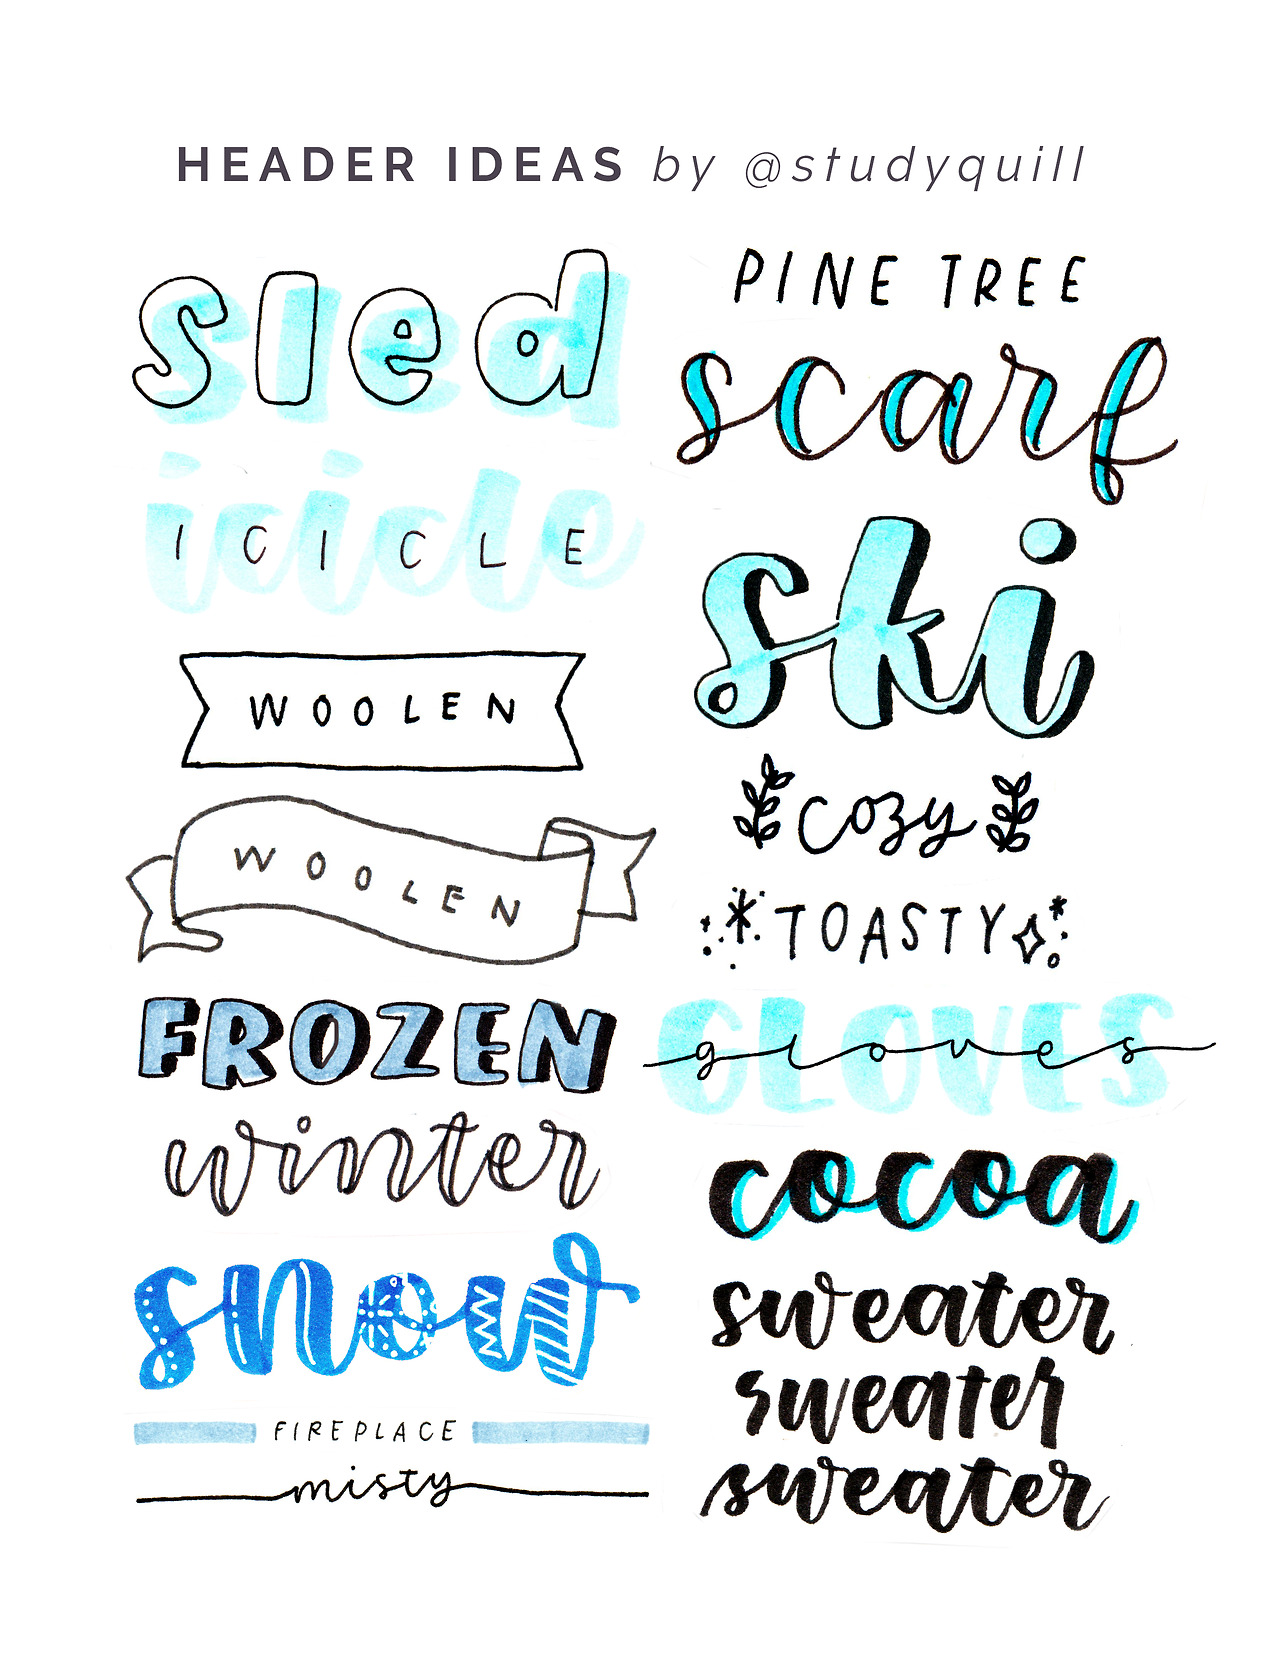 HEADER IDEAS by @studyquill
sled
icicle
ICICLE
WOOLEN
WOOLEN
FROZEN
winter
snow
FIREPLACE
misty
PINE TREE
scarf
ski
cozy
TOASTY
GLOVES
gloves
cocoa
sweater
sweater
sweater